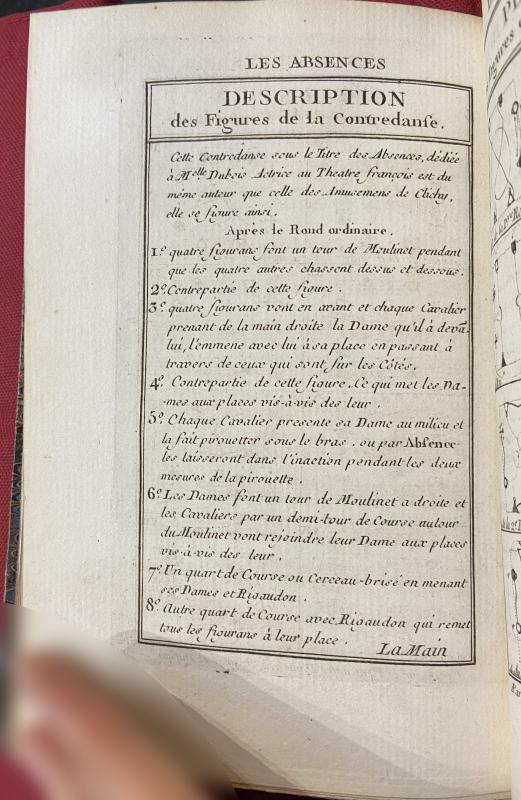 LES ABSENCES
DESCRIPTION
des Figures de la Contredanse.
Cette Contredanse sous le Titre des Absences, dédiée
à M.elle Dubois Actrice au Theatre françois est du
même auteur que celle des Amusemens de Clichy,
elle se figure ainsi.
Après le Rond ordinaire.
1.º quatre figurans font un tour de Moulinet pendant
que les quatre autres chassent dessus et dessous.
2º Contrepartie de cette figure.
3º quatre figurans vont en avant et chaque Cavalier
prenant de la main droite la Dame qu'il à devã.
lui, l'emmene avec lui à sa place en passant à
travers de ceux qui sont sur les Côtés.
4º. Contrepartie de cette figure. Ce qui met les Da-
-mes aux places vis-à-vis des leur.
5º. Chaque Cavalier presente sa Dame au milieu et
la fait pirouetter sous le bras. ou par Absence
les laisseront dans l'inaction pendant les deux
mesures de la pirouette.
6º. Les Dames font un tour de Moulinet a droite et
les Cavaliers par un demi-tour de Course autour
du Moulinet vont rejoindre leur Dame aux places
vis-à-vis des leur.
7º. Un quart de Course ou Cerceau-brisé en menant
ses Dames et Rigaudon.
8º. Autre quart de Course avec Rigaudon qui remet
tous les figurans à leur place.
La Main